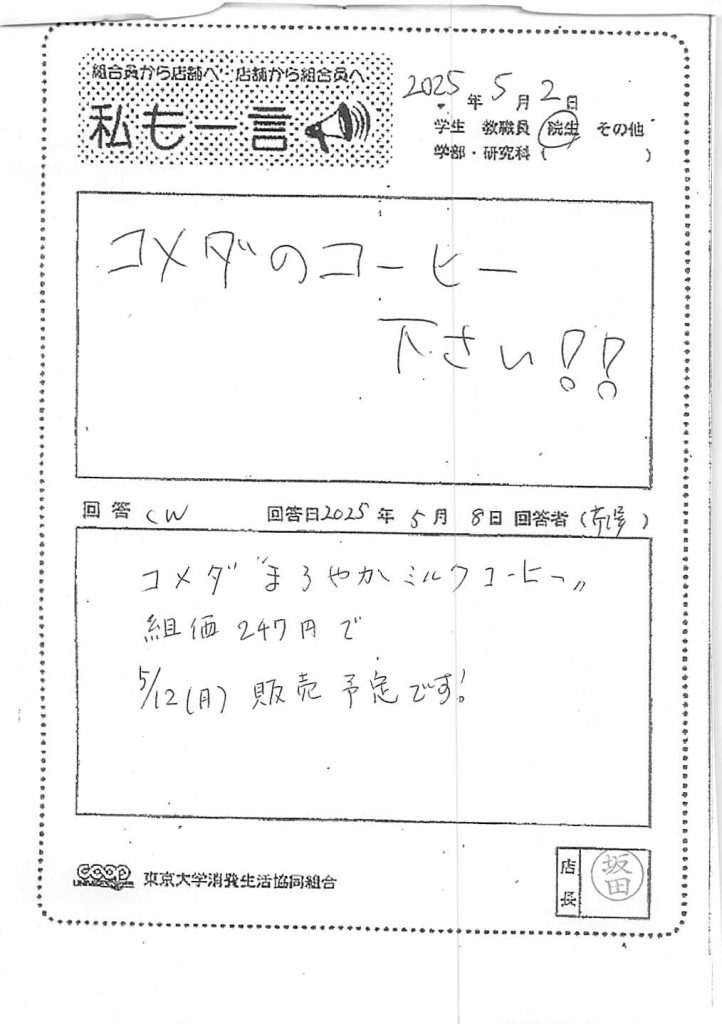 組合員から店舗へ 店舗から組合員へ
私も一言
2025年5月2日
学生 教職員 院生 その他
学部・研究科( )
コメダのコーヒー
下さい!!
回答 CW 回答日2025年5月8日 回答者( )
コメダ"まろやかミルクコーヒー"
組価247円で
5/12(月)販売予定です!
coop 東京大学消費生活協同組合
店長
坂田